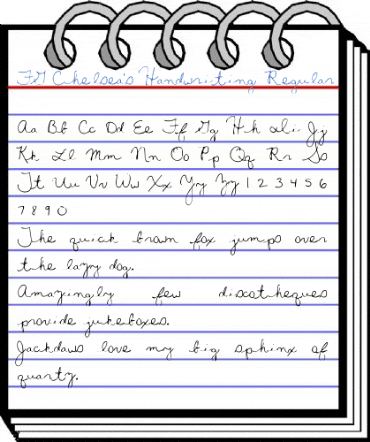 FG Chelsea's Handwriting Regular
Aa Bb Cc Dd Ee Ff Gg Hh Ii Jj
Kk Ll Mm Nn Oo Pp Qq Rr Ss
Tt Uu Vv Ww Xx Yy Zz 1 2 3 4 5 6
7 8 9 0
The quick brown fox jumps over
the lazy dog.
Amazingly few discotheques
provide jukeboxes.
Jackdaws love my big sphinx of
quartz.